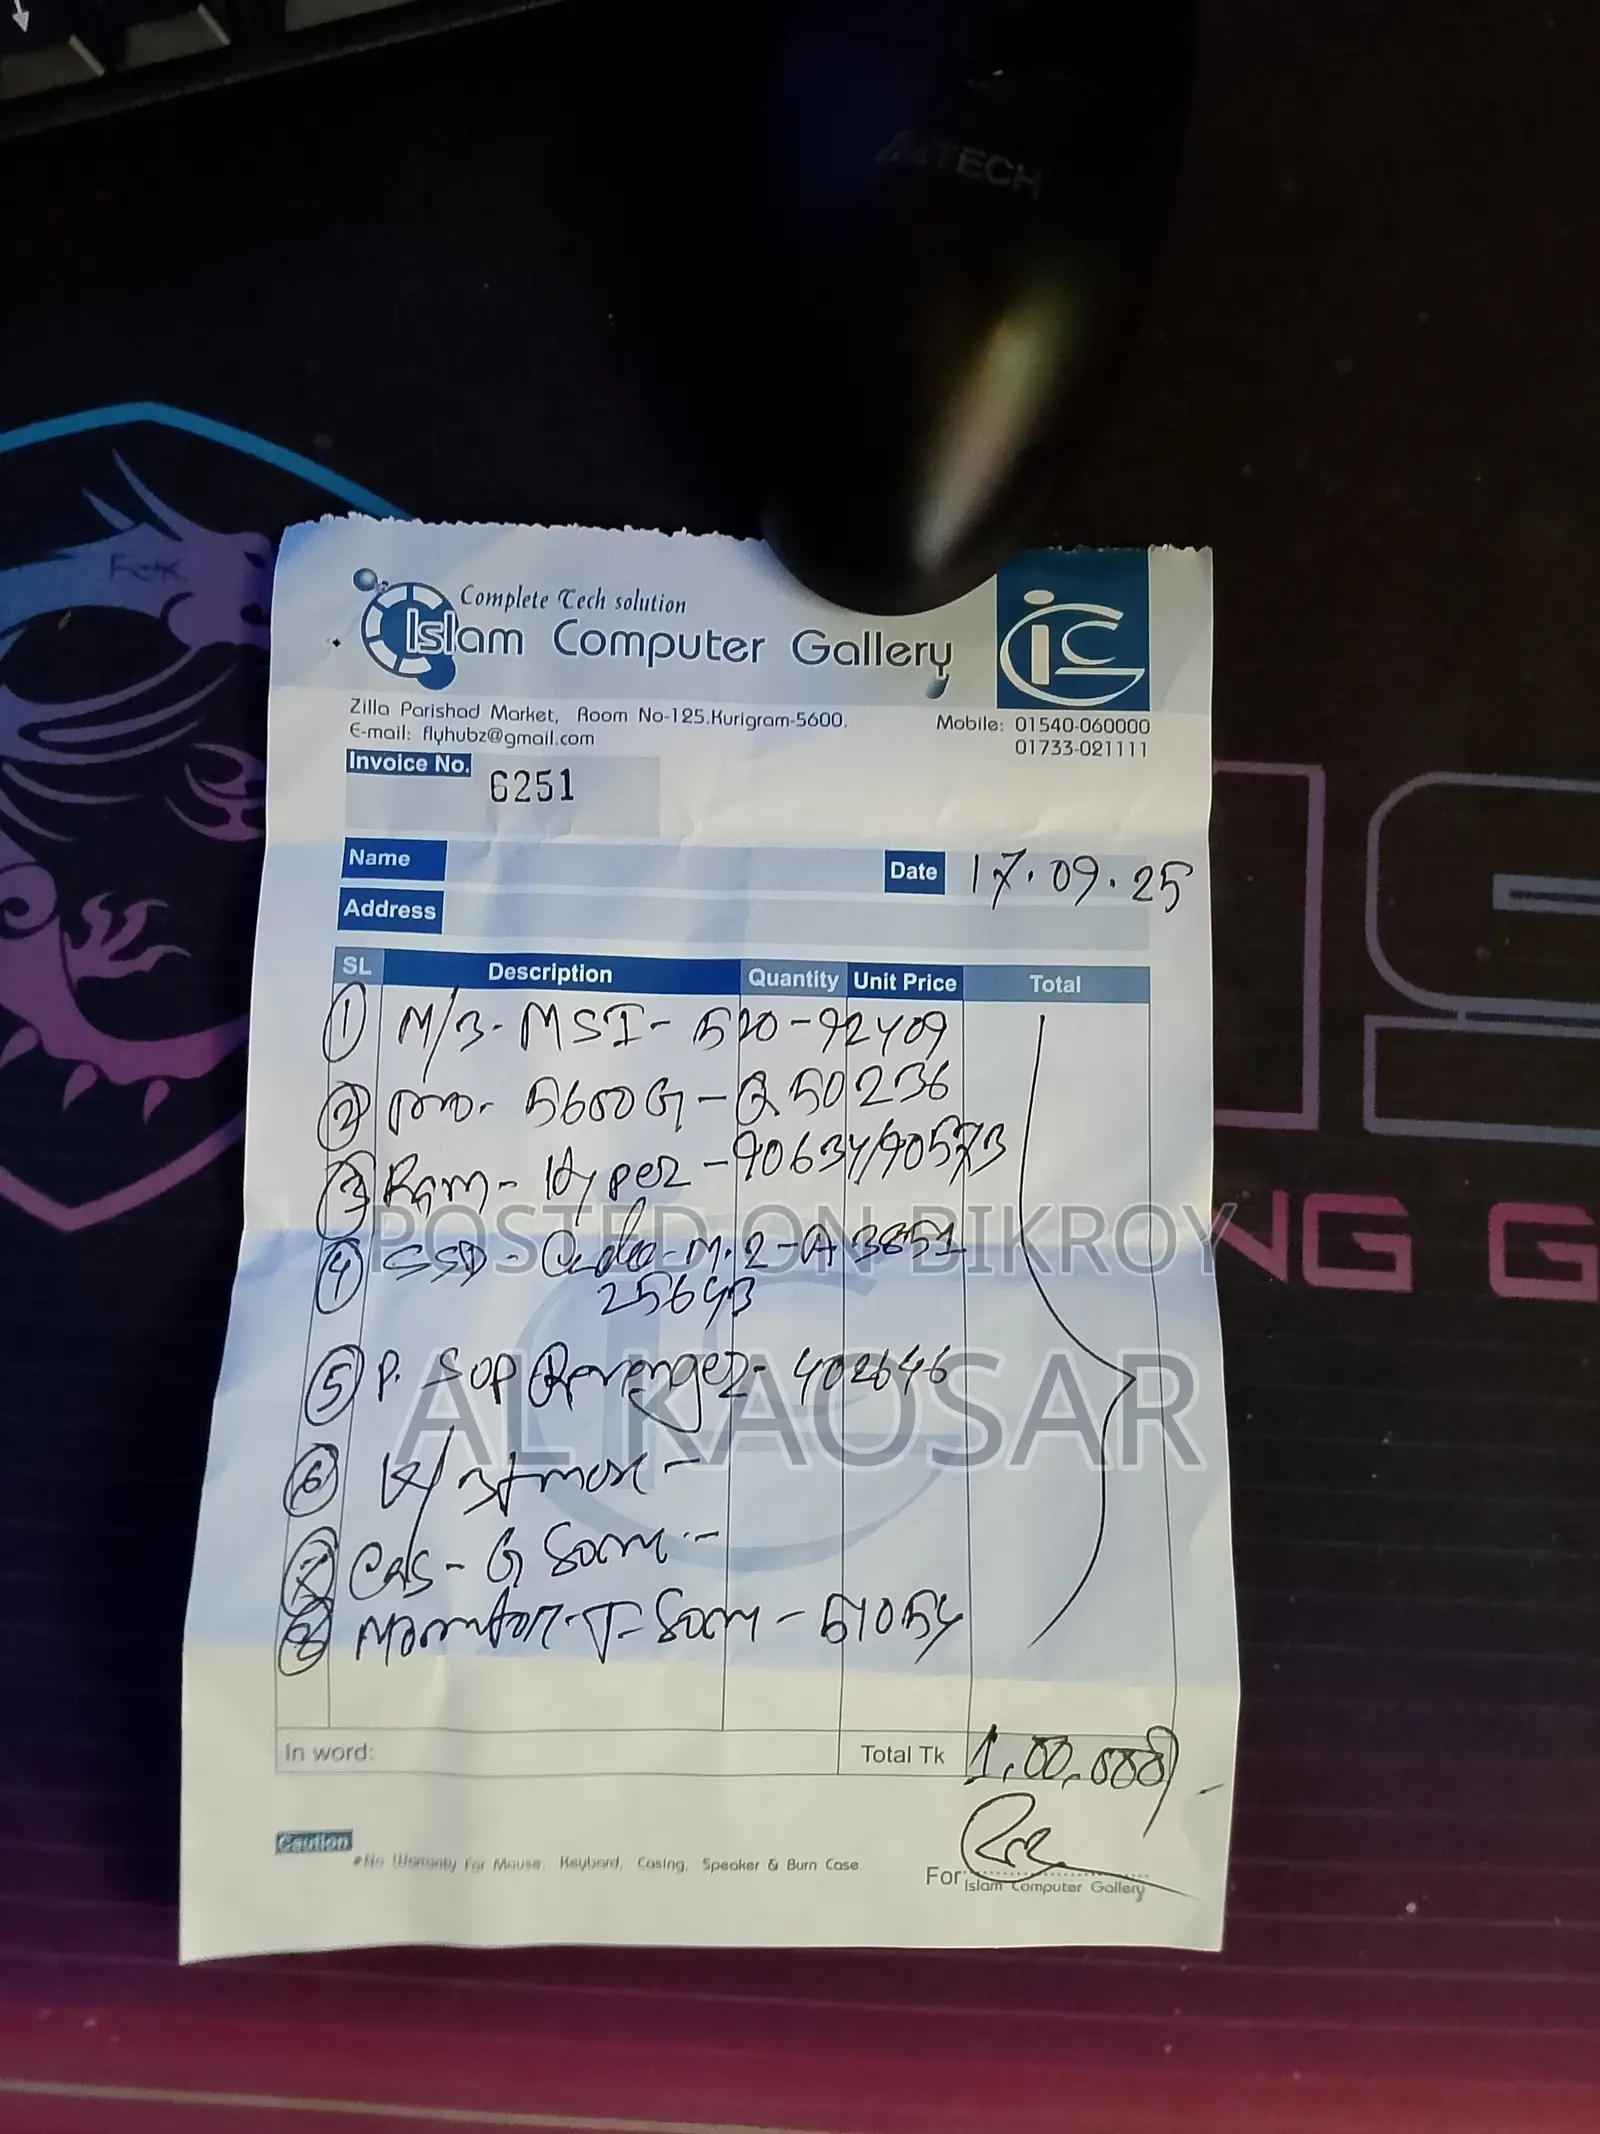 A4TECH
Complete Tech solution
Islam Computer Gallery
Zilla Parishad Market, Room No-125.Kurigram-5600.
E-mail: flyhubz@gmail.com
Mobile: 01540-060000
01733-021111
Invoice No. 6251
Name
Date 17.09.25
Address
SL Description Quantity Unit Price Total
1 M/B- MSI- 520-92409
2 5600G-Q50236
3 Ram- Hyper-90634/90573
4 SSD- M.2-A3851
25643
5 P. 402646
6 K/
7 Cas-
8 Monitor- 51054
POSTED ON BIKROY
AL KAOSAR
In word:
Total Tk 1,00,000/-
Caution
*No Warranty For Mouse, Keybord, Casing, Speaker & Burn Case.
For
Islam Computer Gallery
NG G